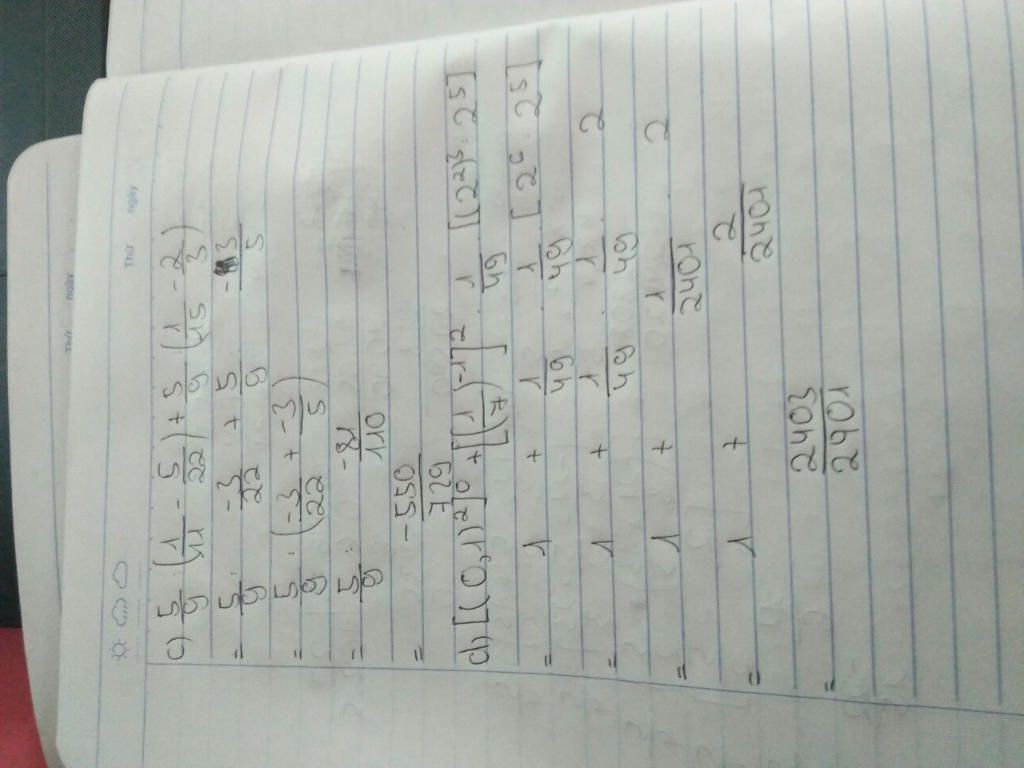 Thứ ngày
Thứ ngày
c) 5/9 : (1/11 - 5/22) + 5/9 : (1/15 - 2/3)
= 5/9 : -3/22 + 5/9 : -3/5
= 5/9 : (-3/22 + -3/5)
= 5/9 : -81/110
= -550/729
d) [(0,1)²]⁰ + [(1/7)⁻¹]² . 1/49 [(2²)³ : 2⁵]
= 1 + 1/49 . 1/49 [2⁶ : 2⁵]
= 1 + 1/49 . 1/49 . 2
= 1 + 1/2401 . 2
= 1 + 2/2401
= 2403/2401